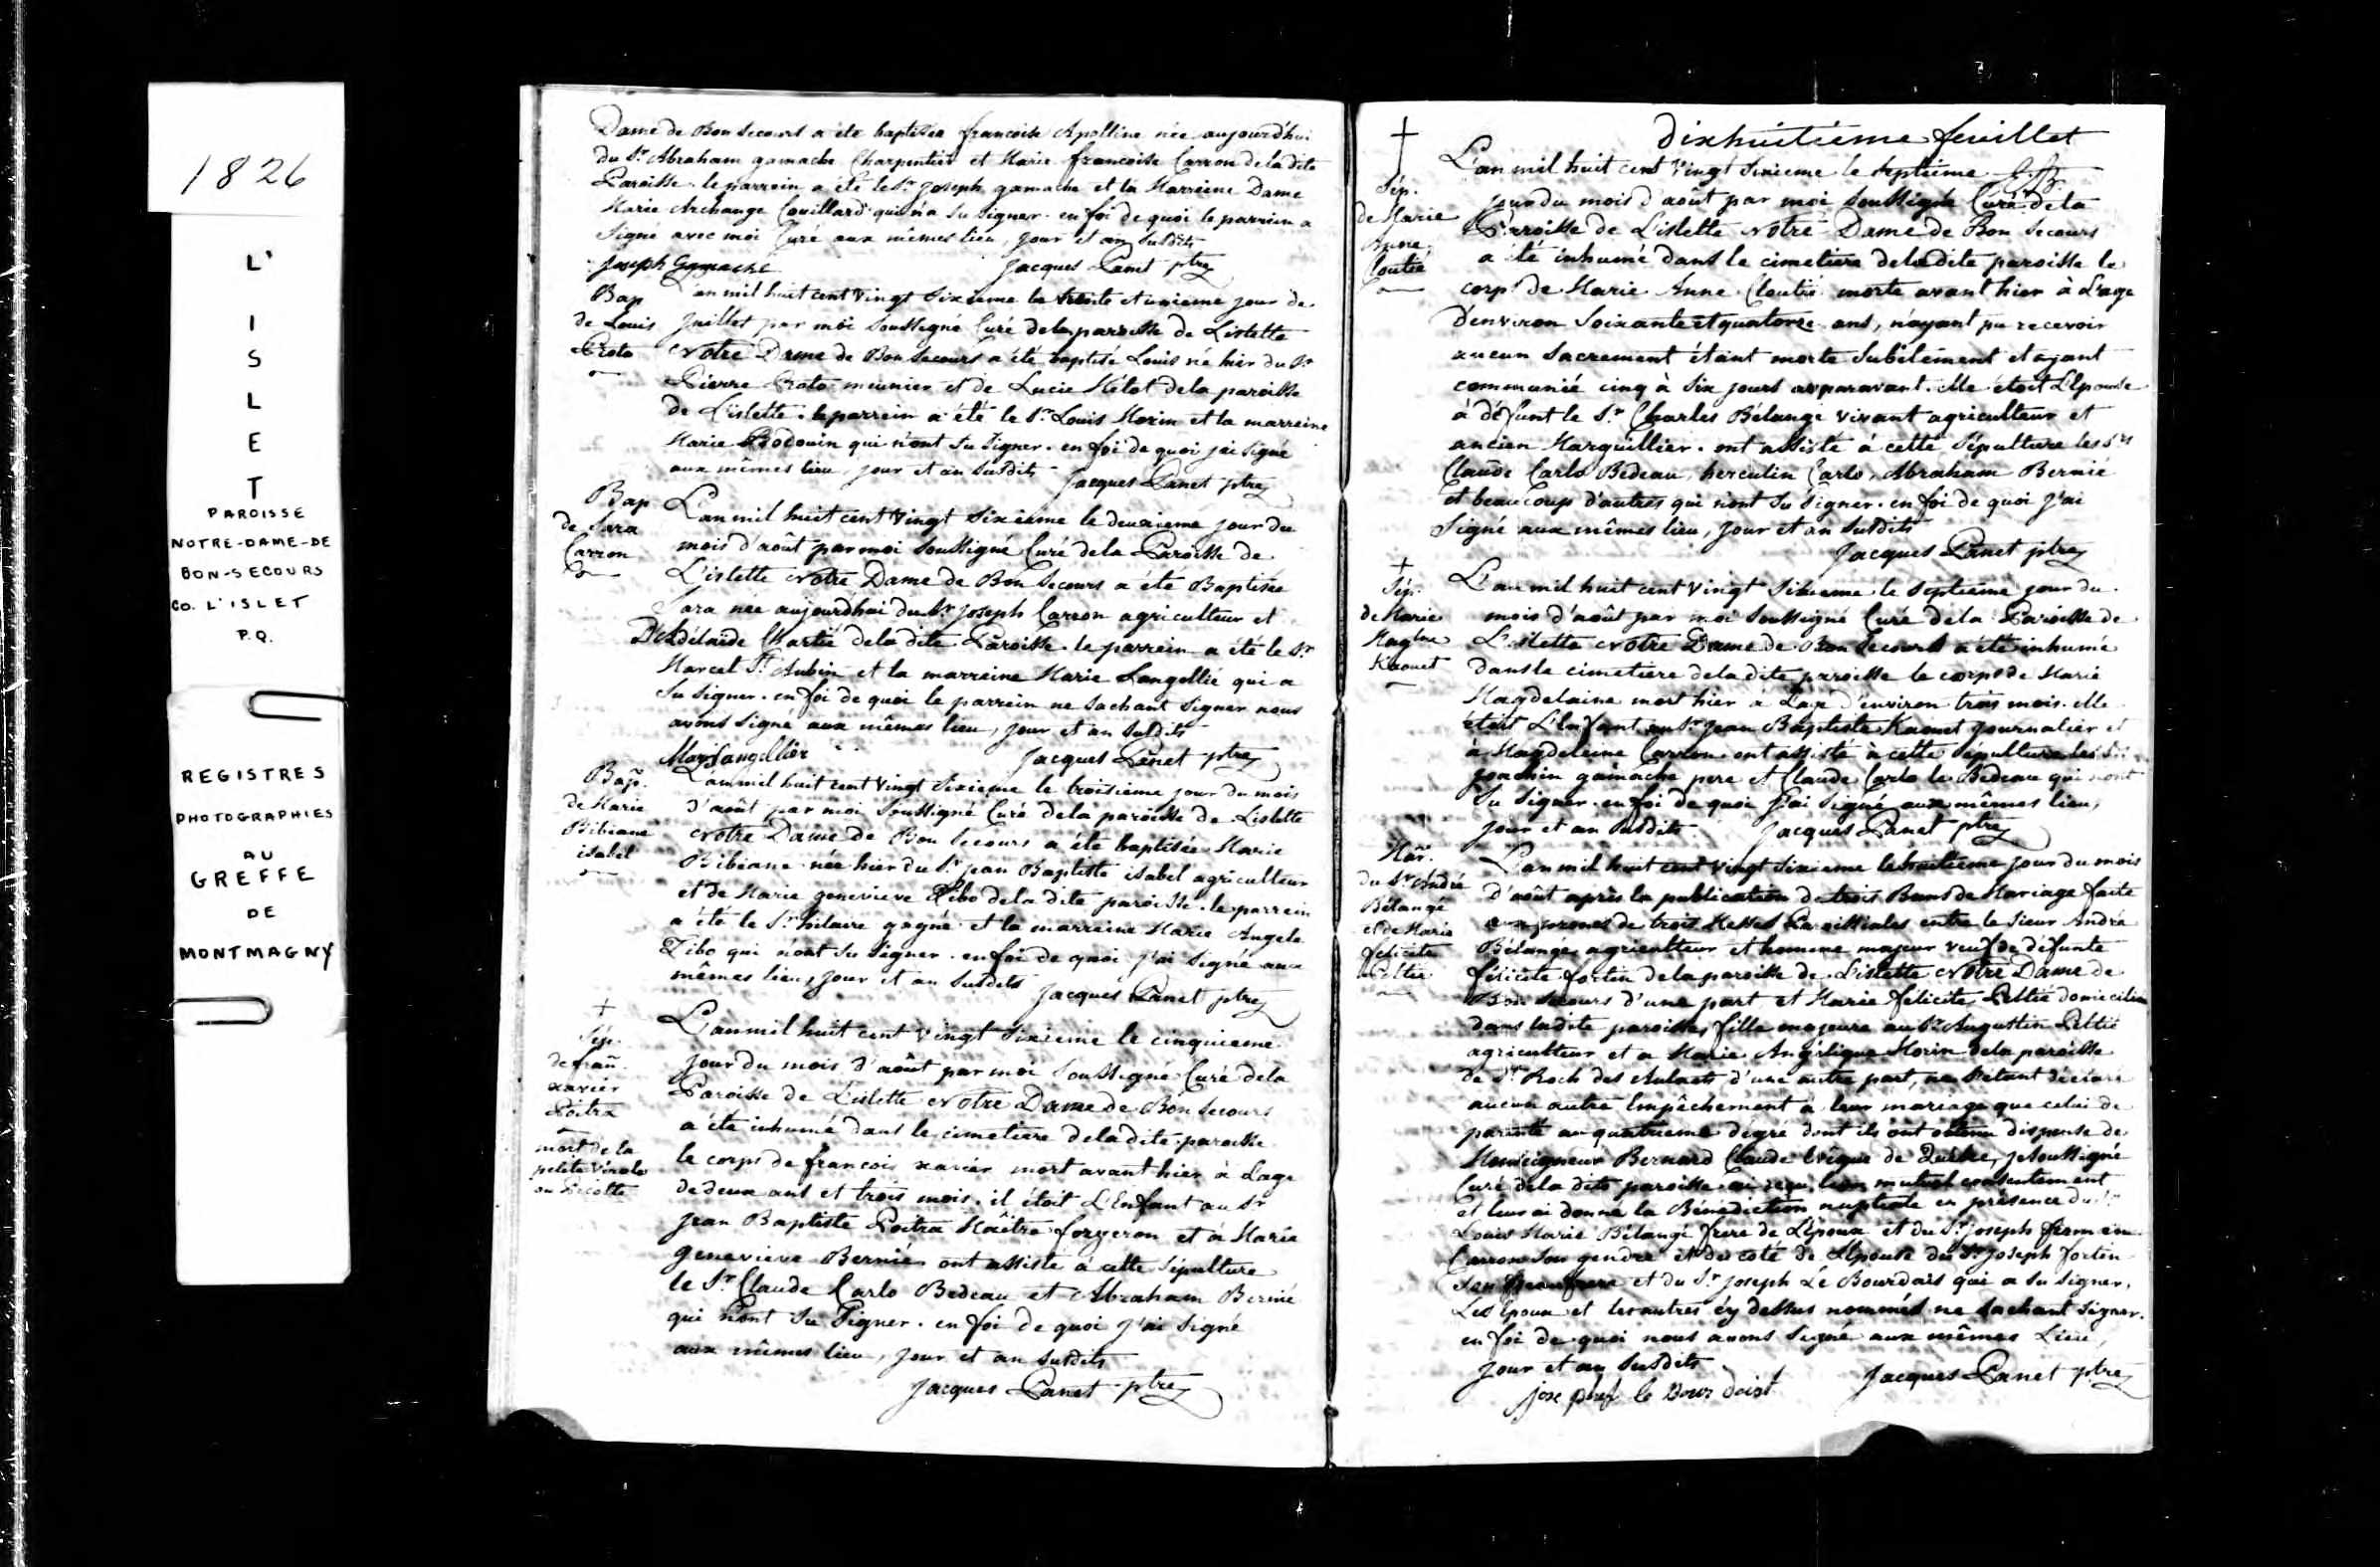 1826
L'
I
S
L
E
T
PAROISSE
NOTRE-DAME-DE
BON-SECOURS
CO. L'ISLET
P.Q.
REGISTRES
PHOTOGRAPHIES
AU
GREFFE
DE
MONTMAGNY
Dame de Bon Secours a été baptisée francoise Apolline née aujourd'hui
du Sr Abraham gamache Charpentier et Marie francoise Carron de la dite
Paroisse. le parrein a été le Sr joseph gamache et la Marreine Dame
Marie Archange Couillard qui n'a Su Signer. en foi de quoi le parrein a
Signé avec moi Curé aux mêmes lieu, jour et an Susdits
Joseph Gamache Jacques Panet ptre
Bap
de Louis
L'an mil huit cent vingt Sixieme le trente et unieme jour de
juillet par moi Soussigné Curé de la paroisse de Lislette
Notre Dame de Bon Secours a été baptisé Louis né hier du Sr
Pierre meunier et de Lucie de la paroisse
de L'islette. le parrein a été le Sr Louis Morin et la marreine
Marie Bodouin qui n'ont Su Signer. en foi de quoi jai Signé
aux mêmes lieu, jour et an Susdits Jacques Panet ptre
Bap
de Sara
Carron
L'an mil huit cent vingt Sixieme le deuxieme jour du
mois d'août par moi Soussigné Curé de la Paroisse de
L'islette Notre Dame de Bon Secours a été Baptisée
Sara née aujourdhui du Sr Joseph Carron agriculteur et
D'Adélaide Chartié de la dite Paroisse. le parrein a été le Sr
Marcel St Aubin et la marreine Marie Langellié qui a
Su Signer. en foi de quoi le parrein ne Sachant Signer nous
avons Signé aux mêmes lieu, jour et an Susdits
Mary Langellier Jacques Panet ptre
Bap.
de Marie
Bibiane
isabel
L'an mil huit cent vingt Sixieme le troisieme jour du mois
d'août par moi Soussigné Curé de la paroisse de Lislette
Notre Dame de Bon Secours a été baptisée Marie
Bibiane née hier du Sr jean Baptiste isabel agriculteur
et de Marie genevieve Tibo de la dite paroisse. le parrein
a été le Sr hilaire gagné et la marreine Marie Angele
Tibo qui n'ont Su Signer. en foi de quoi j'ai Signé aux
mêmes lieu, jour et an Susdits Jacques Panet ptre
Sép.
de fran.
xavier
Poitra
mort de la
petite Virole
ou Picotte
L'an mil huit cent vingt Sixieme le cinquieme
jour du mois d'août par moi Soussigné Curé de la
Paroisse de L'islette Notre Dame de Bon Secours
a été inhumé dans le cimetiere de la dite paroisse
le corps de francois xavier mort avant hier à Lage
de deux ans et trois mois. il étoit L'Enfant au Sr
Jean Baptiste Poitra Maître forgeron et à Marie
genevieve Bernié ont assisté à cette Sépulture
le Sr Claude Carlo Bedeau et Abraham Bernié
qui n'ont Su Signer. en foi de quoi j'ai Signé
aux mêmes lieu, jour et an Susdits
Jacques Panet ptre
dixhuitieme feuillet
Sép.
de Marie
Anne
Cloutié
L'an mil huit cent vingt Sixieme le Septieme
jour du mois d'août par moi Soussigné Curé de la
Paroisse de L'islette Notre Dame de Bon Secours
a été inhumé dans le cimetiere de la dite paroisse le
corps de Marie Anne Cloutié morte avant hier à L'age
D'environ Soixante et quatorze ans, n'ayant pu recevoir
aucun Sacrement étant morte Subitement et ayant
communié cinq à Six jours avparavant. elle étoit L'Epouse
à défunt le Sr Charles Bélangé vivant agriculteur et
ancien Marguillier. ont assisté à cette Sépulture les Srs
Claude Carlo Bedeau, herculin Carlo, Abraham Bernié
et beaucoup d'autres qui n'ont Su Signer. en foi de quoi J'ai
Signé aux mêmes lieu, jour et an Susdits
Jacques Panet ptre
Sép.
de Marie
Magne
Kaouet
L'an mil huit cent vingt Sixieme le Septieme jour du
mois d'août par moi Soussigné Curé de la Paroisse de
L'islette Notre Dame de Bon Secours a été inhumé
dans le cimetiere de la dite paroisse le corps de Marie
Magdelaine mort hier à L'age d'environ trois mois. elle
étoit L'Enfant au Sr Jean Baptiste Kaouet journalier et
à Magdeleine Carron ont assisté à cette Sépulture les Srs
Joachin gamache pere et Claude Carlo le Bedeau qui n'ont
Su Signer. en foi de quoi J'ai Signé aux mêmes lieu,
jour et an Susdits Jacques Panet ptre
Mar.
du Sr André
Bélangé
et de Marie
félicité
Peltié
L'an mil huit cent vingt Sixieme le huitieme jour du mois
d'août après la publication de trois Bans de Mariage faite
aux prones de trois Messes Paroissiales entre le Sieur André
Bélangé, agriculteur et homme majeur veuf de défunte
félicité fortin de la paroisse de Lislette Notre Dame de
Bon Secours d'une part et Marie félicité Peltié domiciliée
dans ladite paroisse, fille majeure au Sr Augustin Peltié
agriculteur et a Marie Angélique Morin de la paroisse
de St Roch des Aulnets d'une autre part, ne S'étant déclaré
aucun autre Empêchement à leur mariage que celui de
parenté au quatrieme dégré dont ils ont obtenu dispense de
Monseigneur Bernard Claude Evêque de Québec, je Soussigné
Curé de la dite paroisse ai reçu leur mutuel consentement
et leur ai donné la Bénédiction nuptiale en présence du Sr
Louis Marie Bélangé frere de L'époux et du Sr joseph firmin
Carron Son gendre et du coté de L'Epouse du Sr joseph fortin
Son Beaufrere et du Sr joseph Le Bourdais qui a Su Signer,
Les Epoux et les autres cy dessus nommés ne Sachant Signer.
en foi de quoi nous avons Signé aux mêmes Lieu,
jour et an Susdits Jacques Panet ptre